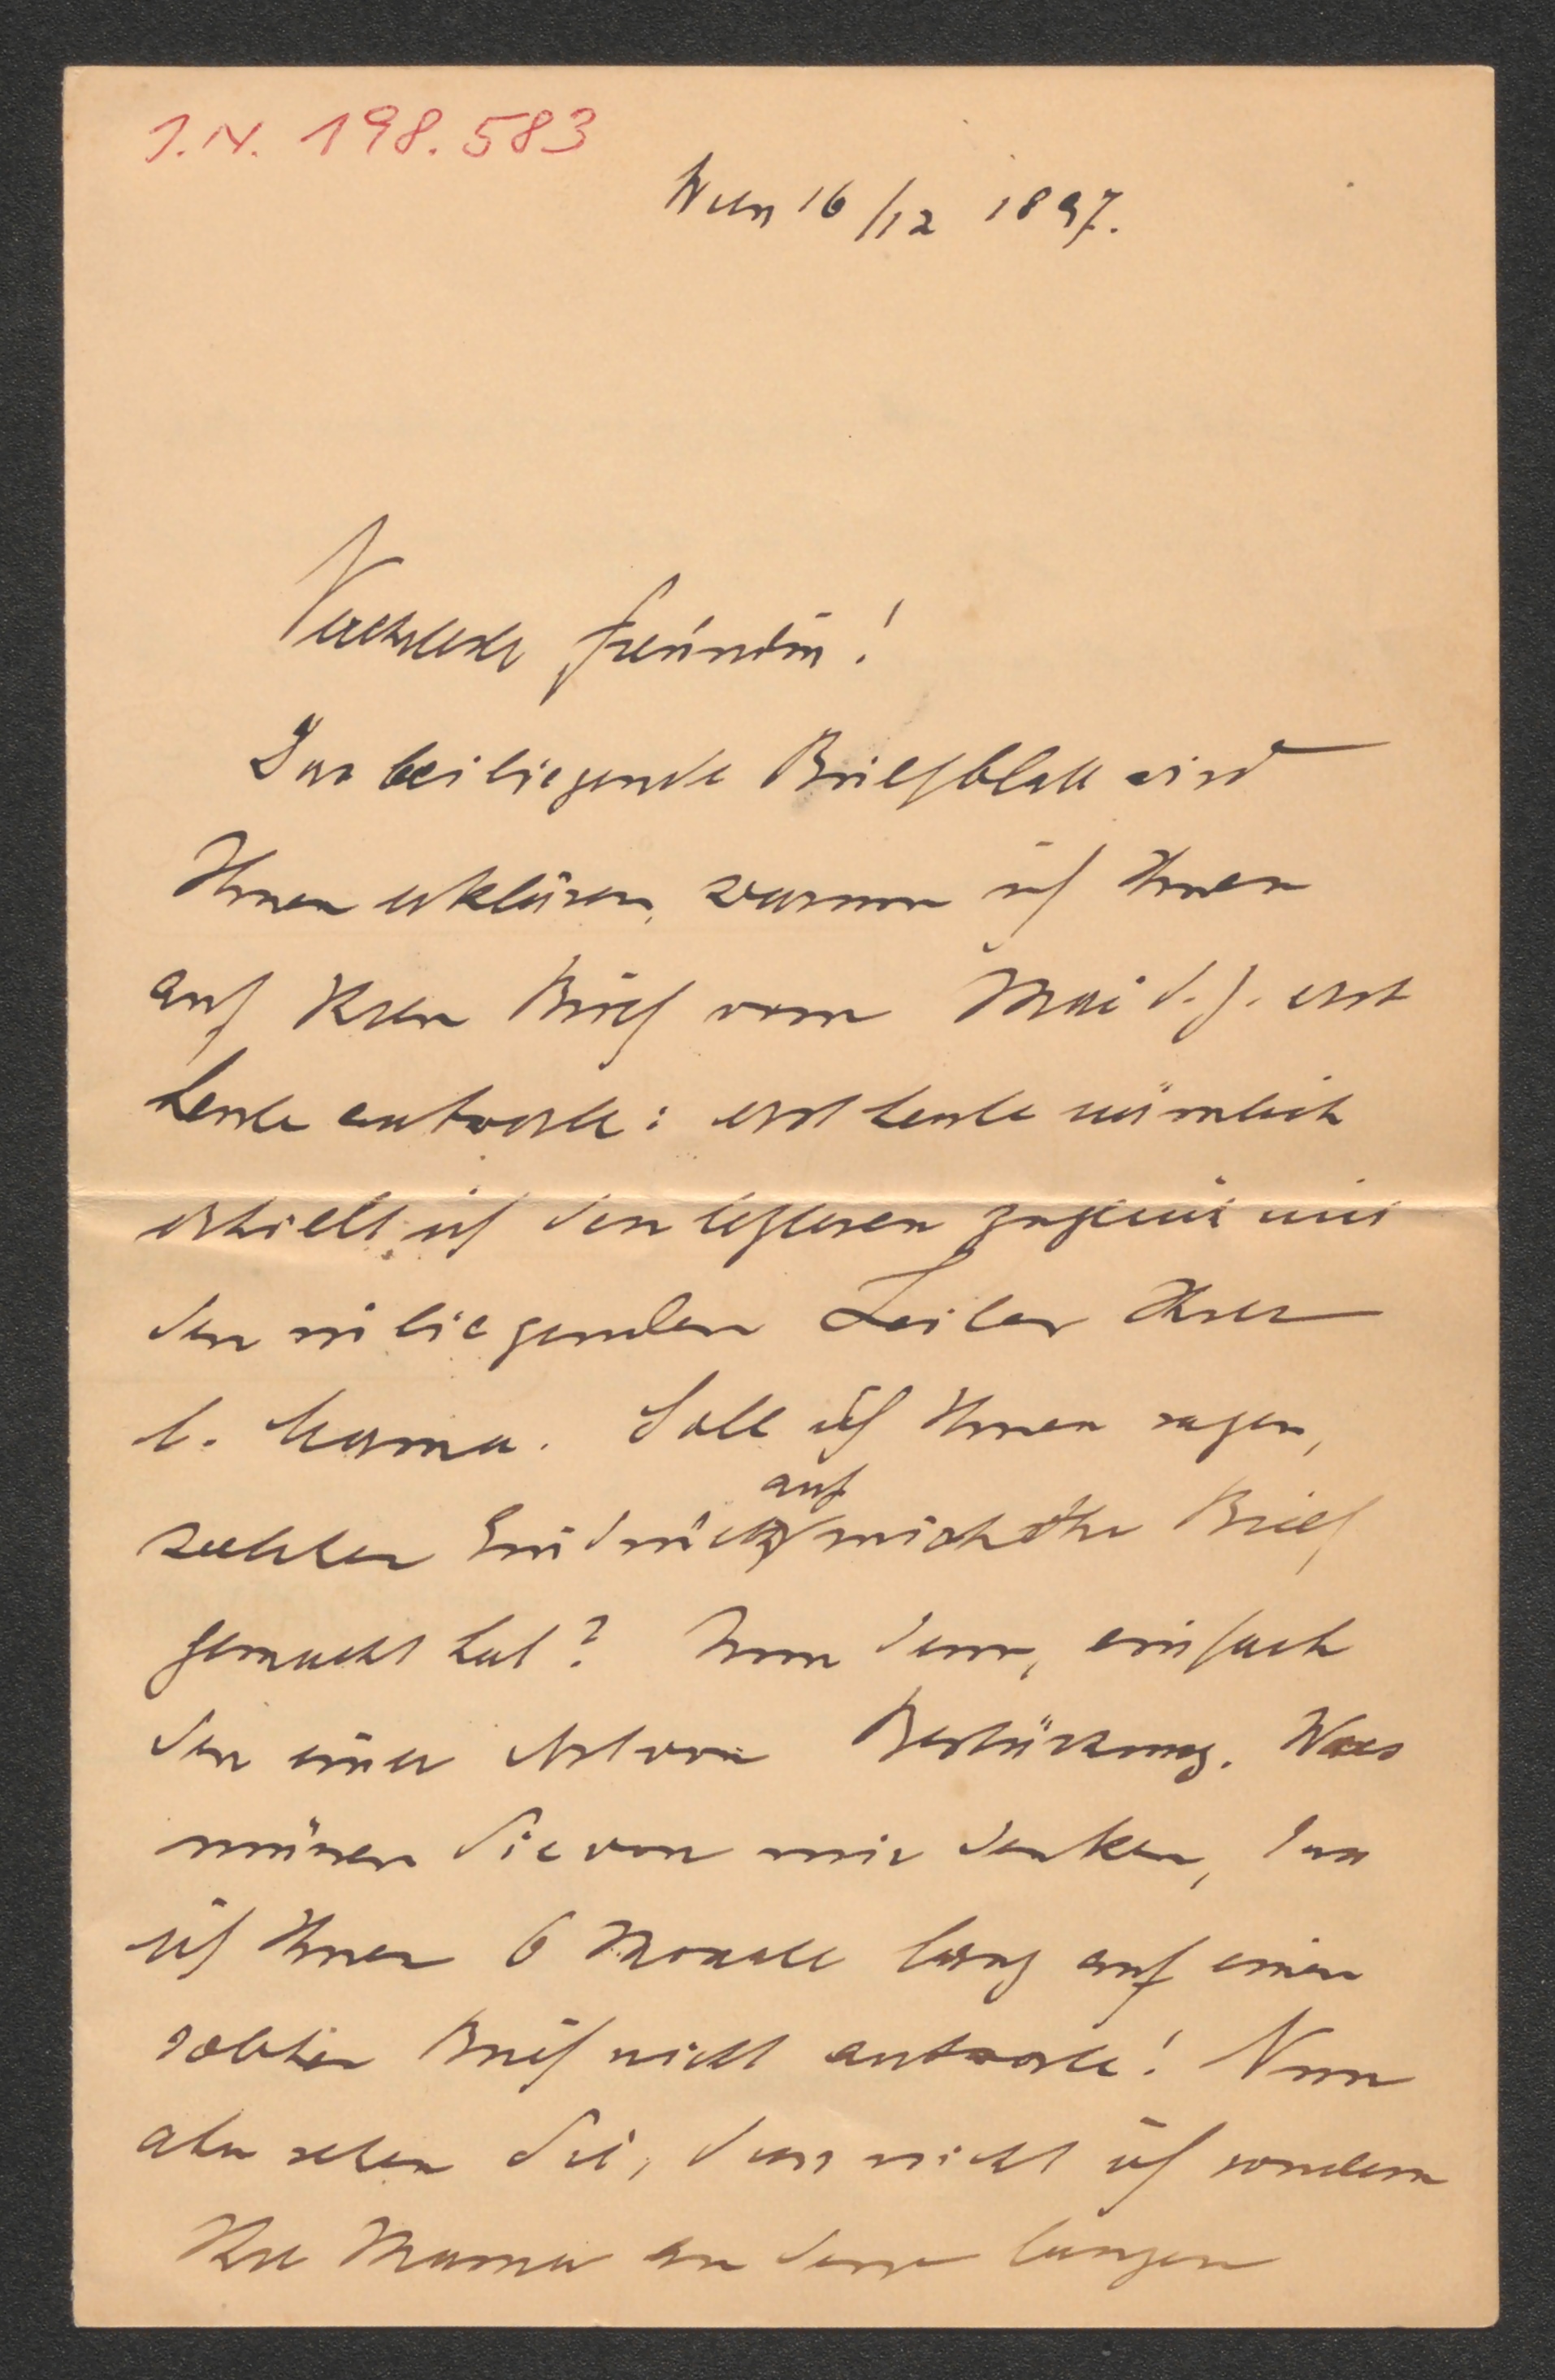 I.N. 198.583
Wien 16/12 1897.
Verehrteste Freundin!
Das beiliegende Briefblatt wird
Ihnen erklären, warum ich Ihnen
auf Ihren Brief vom Mai d. J. erst
heute antworte: erst heute nämlich
erhielt ich den letzteren zugleich mit
den inliegenden Zeilen Ihrer
l. Mama. Soll ich Ihnen sagen,
welchen Eindruck auf mich Ihr Brief
gemacht hat? Nun denn, einfach
den einer Art von Bestürzung. Was
müssen Sie von mir denken, dass
ich Ihnen 6 Monate lang auf einen
solchen Brief nicht antworte! Nun
aber sehen Sie, dass nicht ich sondern
Ihre Mama an dem langen